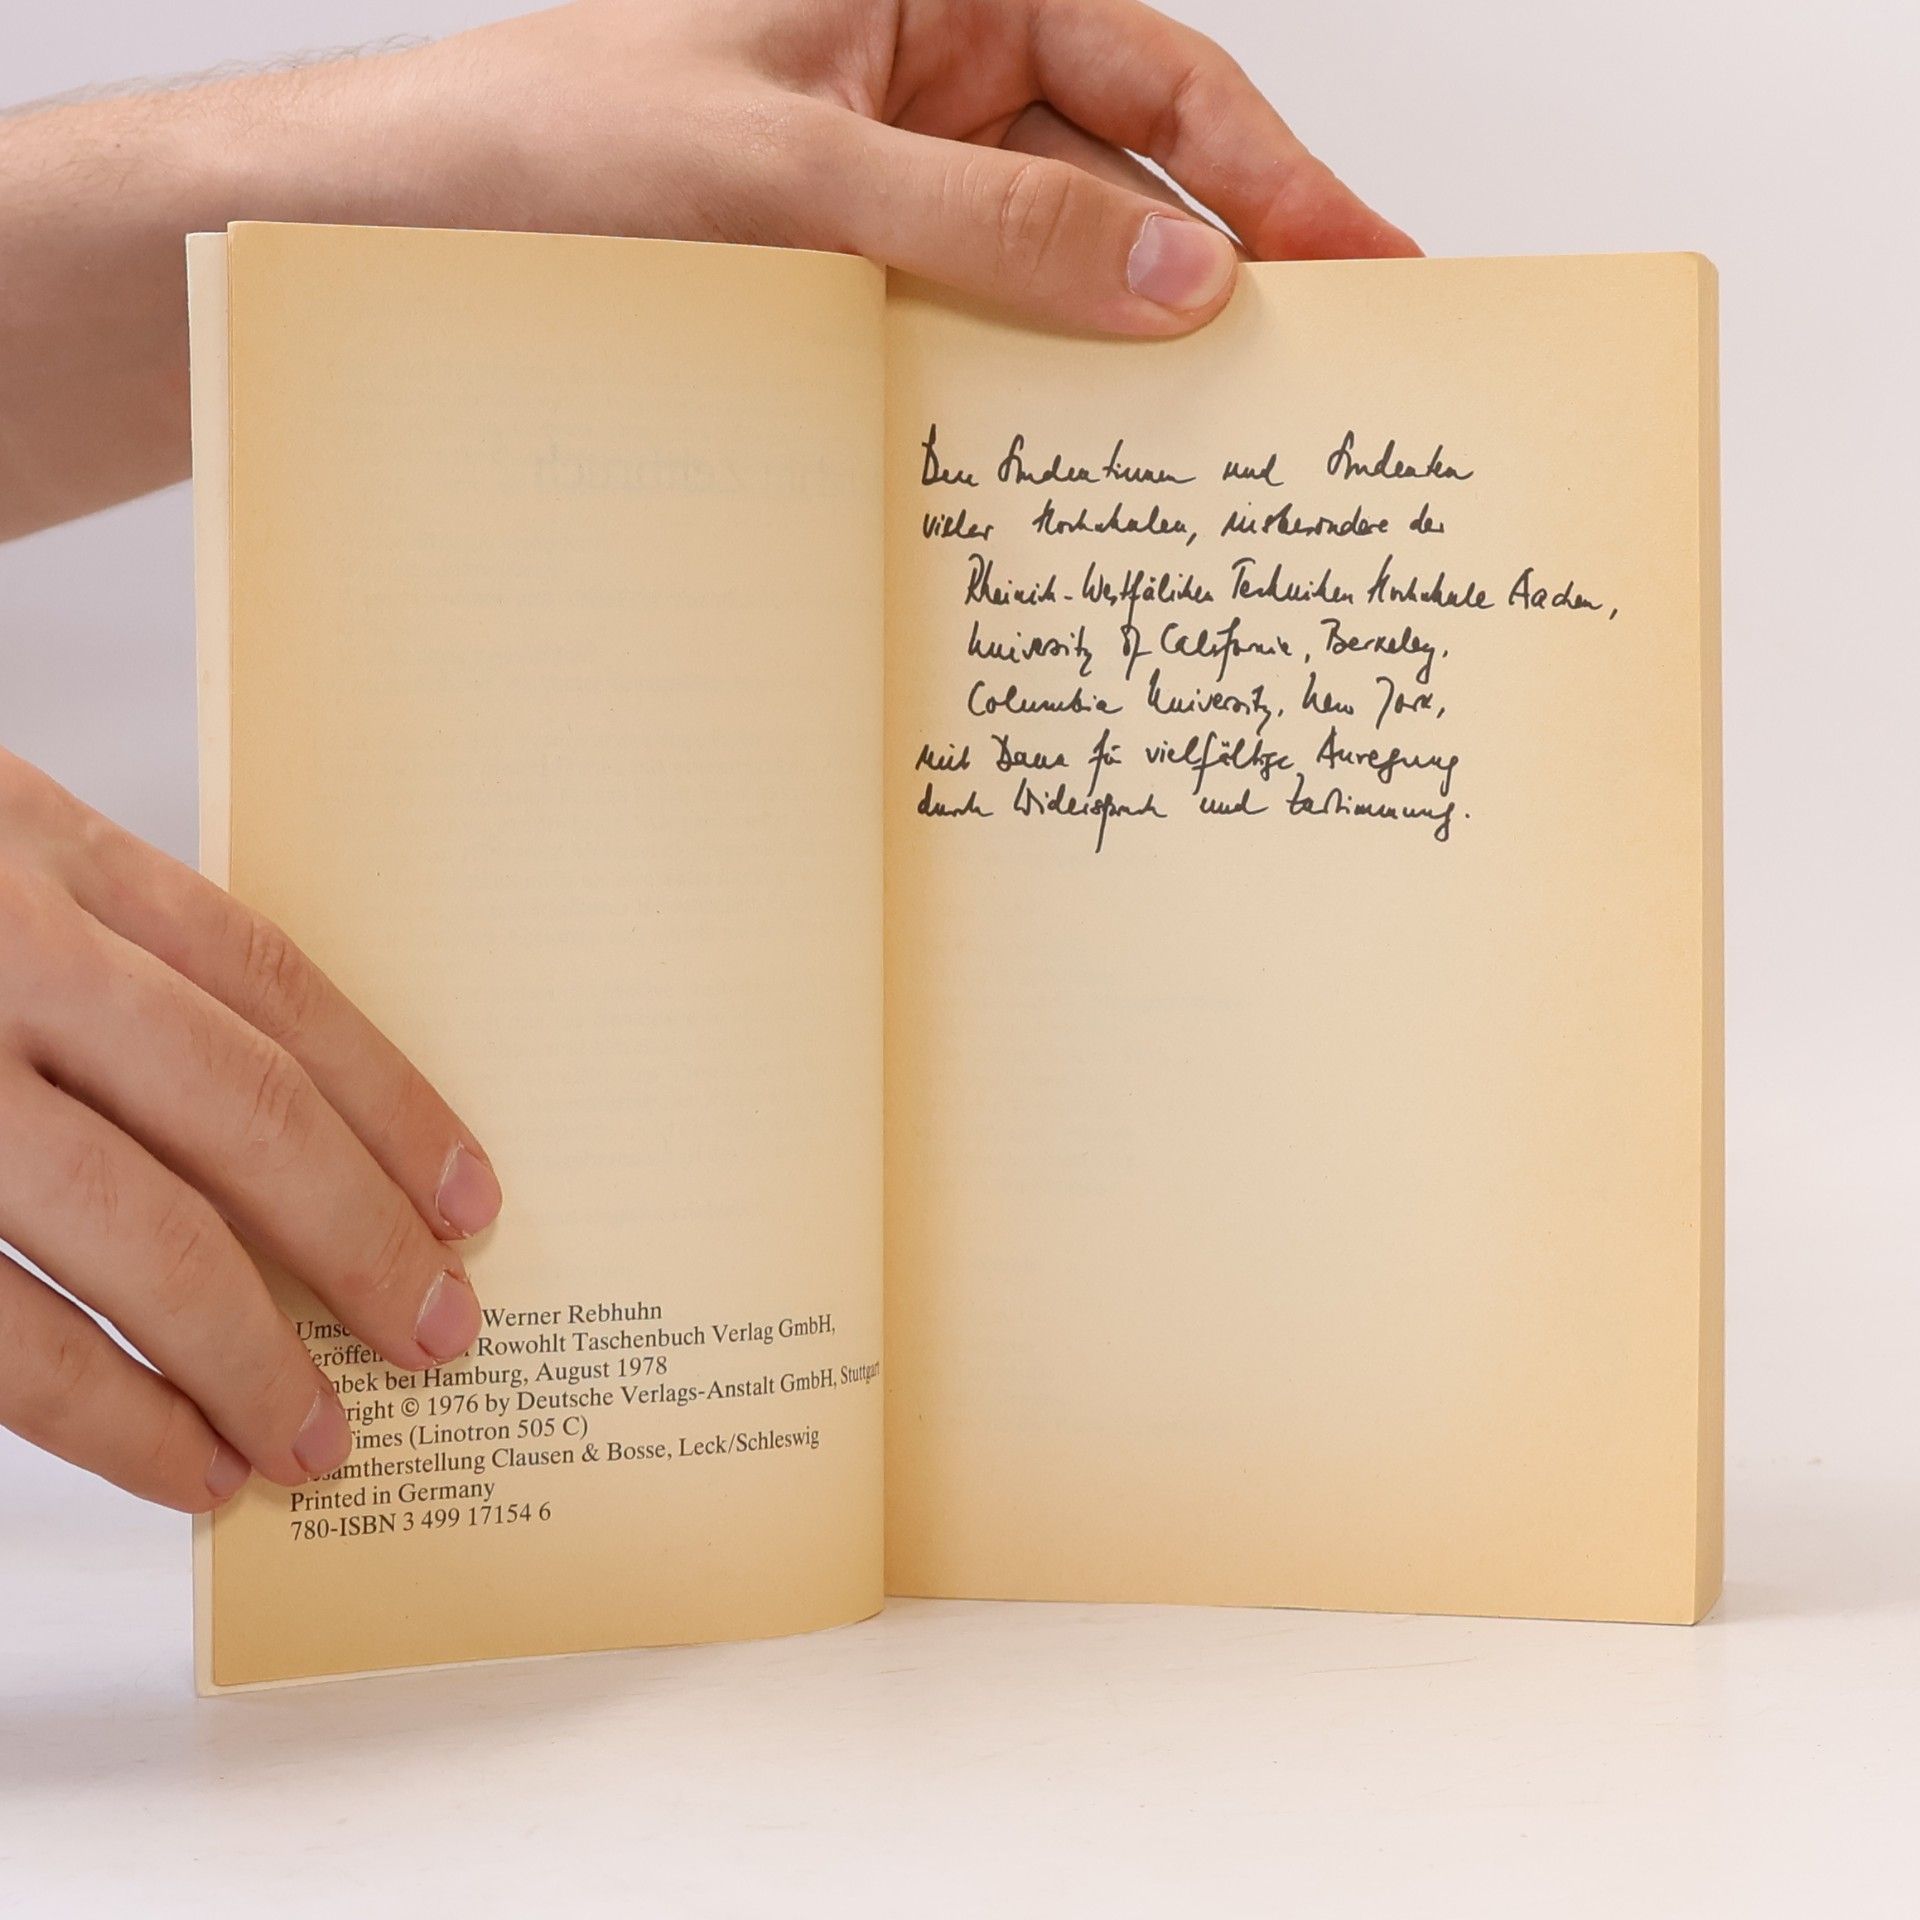 Werner Rebhuhn
Rowohlt Taschenbuch Verlag GmbH,
bei Hamburg, August 1978
© 1976 by Deutsche Verlags-Anstalt GmbH, Stuttgart
Times (Linotron 505 C)
Clausen & Bosse, Leck/Schleswig
Printed in Germany
780-ISBN 3 499 17154 6
Den Studentinnen und Studenten
vieler Hochschulen, insbesondere der
Rheinisch-Westfälischen Technischen Hochschule Aachen,
University of California, Berkeley,
Columbia University, New York,
mit Dank für vielfältige Anregung
durch Widerspruch und Zustimmung.